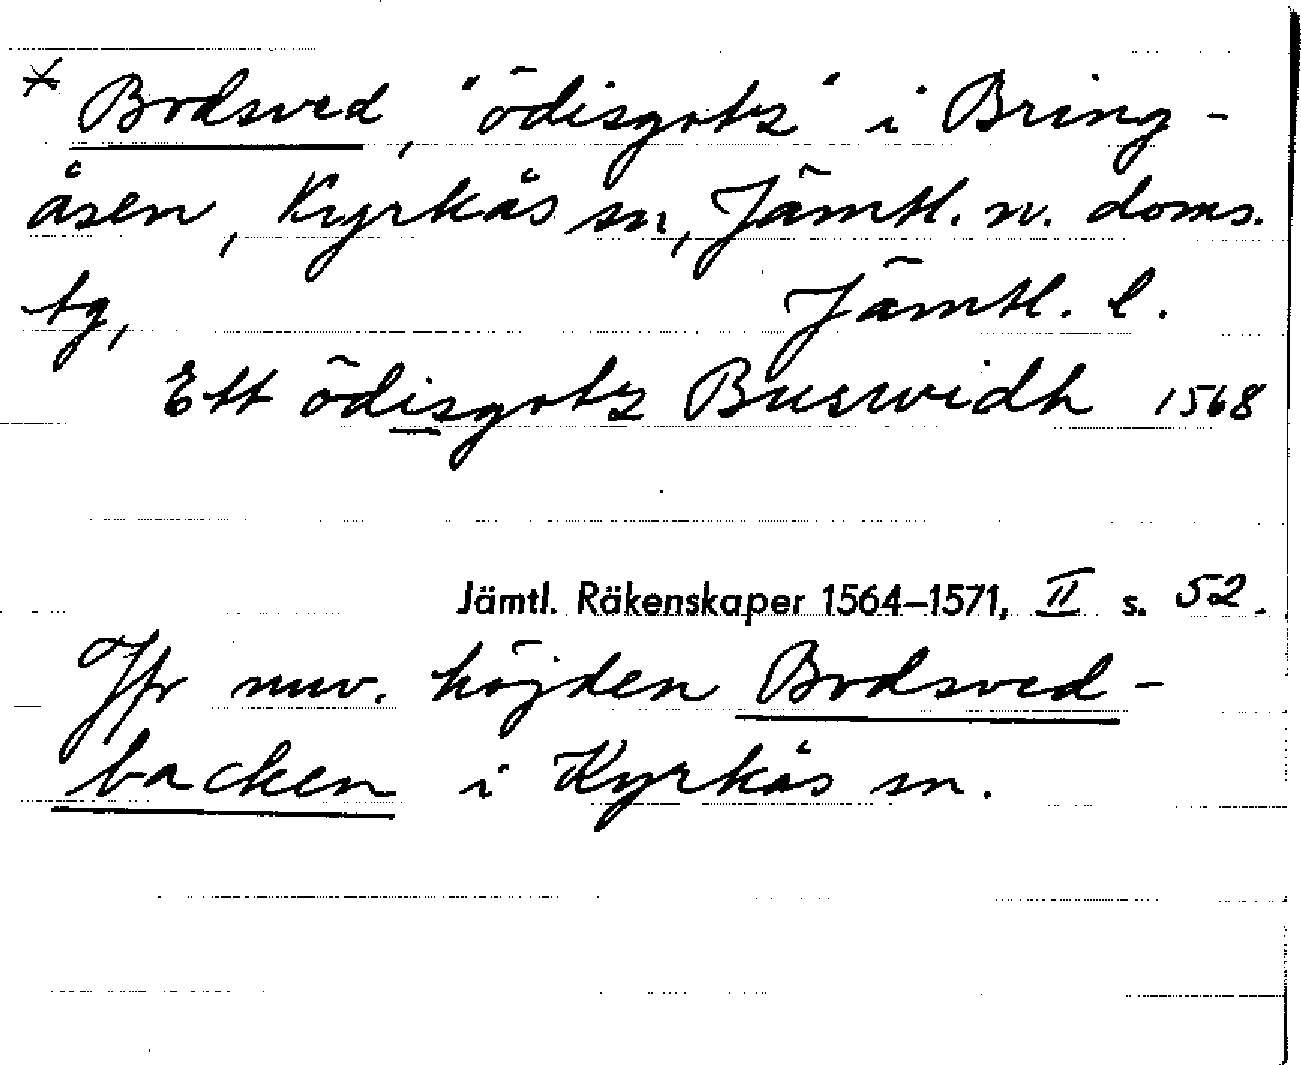 * Bodsved, "ödisgotz" i Bring-
åsen, Kyrkås sn, Jämtl. n. doms.
tg, Jämtl. l.
Ett ödisgotz Buswidh 1568
Jämtl. Räkenskaper 1564–1571, II s. 52.
Jfr nuv. höjden Bodsved-
backen i Kyrkås sn.